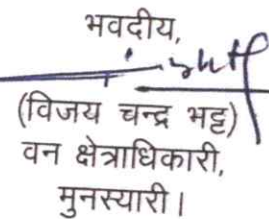 भवदीय,
(विजय चन्द्र भट्ट)
वन क्षेत्राधिकारी,
मुनस्यारी।